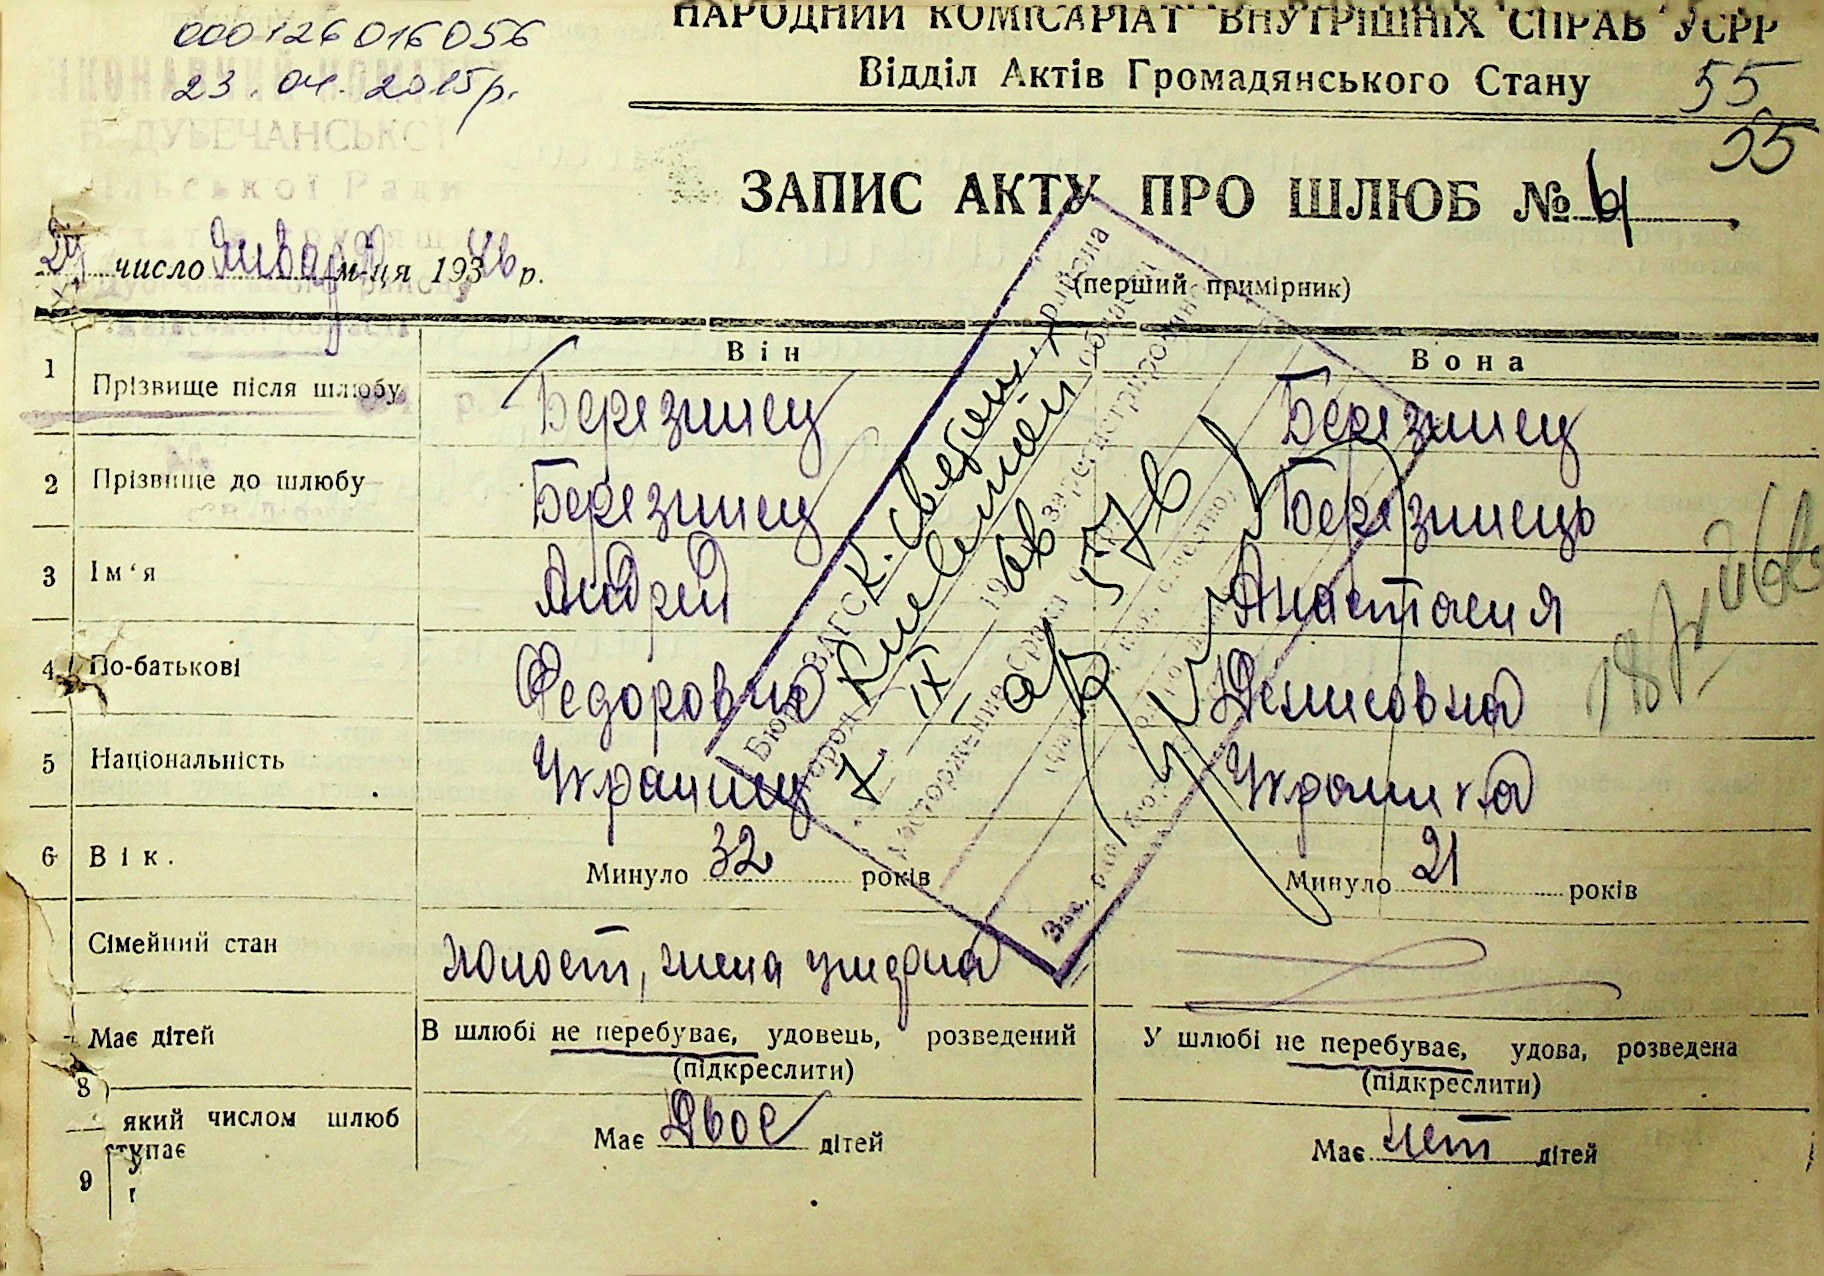 000126016056
23.04.2015р.
НАРОДНИЙ КОМІСАРІАТ ВНУТРІШНІХ СПРАВ УСРР
Відділ Актів Громадянського Стану
55
55
ДУБЕЧАНСЬКОЇ
ЗАПИС АКТУ ПРО ШЛЮБ №
число Января м-ця 193 46 р.
(перший примірник)
Він Вона
1 Прізвище після шлюбу Березинец Березинец
2 Прізвище до шлюбу Березинец Березинець
3 Ім‘я Андрей Анастасия
4 По-батькові Федорович Денисовна
5 Національність Украинец Украинка
6 Вік. Минуло 32 років Минуло 21 років
Сімейний стан холост, жена умерла
Має дітей В шлюбі не перебуває, удовець, розведений У шлюбі не перебуває, удова, розведена
(підкреслити) (підкреслити)
8
який числом шлюб
ступає
Має Двое дітей Має нет дітей
9
Бюро ЗАГС района
город Киевской области
7 IX
расторжение брака